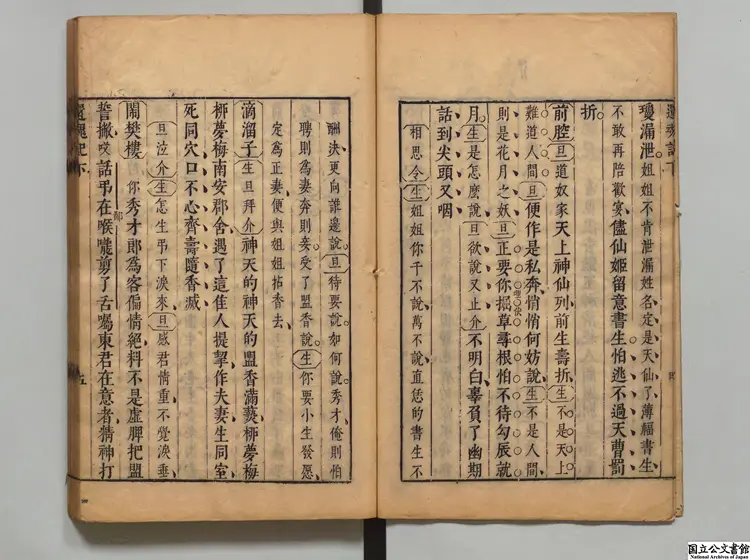 瓊漏泄姐姐不肯泄漏姓名定是天仙了薄福書生
不敢再陪歡宴儘仙姬留意書生怕逃不過天曹罰
折
前腔旦道奴家天上神仙列前生壽折生不是天上
難道人間旦便作是私奔悄悄何妨說生不是人間
則是花月之妖旦正要你掘草尋根怕不待勾辰就
月生是怎麼說旦欲說又止介不明白辜負了幽期
話到尖頭又咽
相思令生姐姐你千不說萬不說直恁的書生不
酬決更向誰邊說旦待要說如何說秀才俺則怕
聘則為妻奔則妾受了盟香說生你要小生發愿
定為正妻便與姐姐拈香去
滴溜子生旦拜介神天的神天的盟香滿爇柳夢梅
柳夢梅南安郡舍遇了這佳人提挈作夫妻生同室
死同穴口不心齊壽隨香滅
旦泣介生怎生弔下淚來旦感君情重不覺淚垂
鬧樊樓 你秀才郎為客偏情絕料不是虛脾把盟
誓撇哎話弔在喉嚨剪了舌囑東君在意者精神打
還魂記下
五
国立公文書館
National Archives of Japan